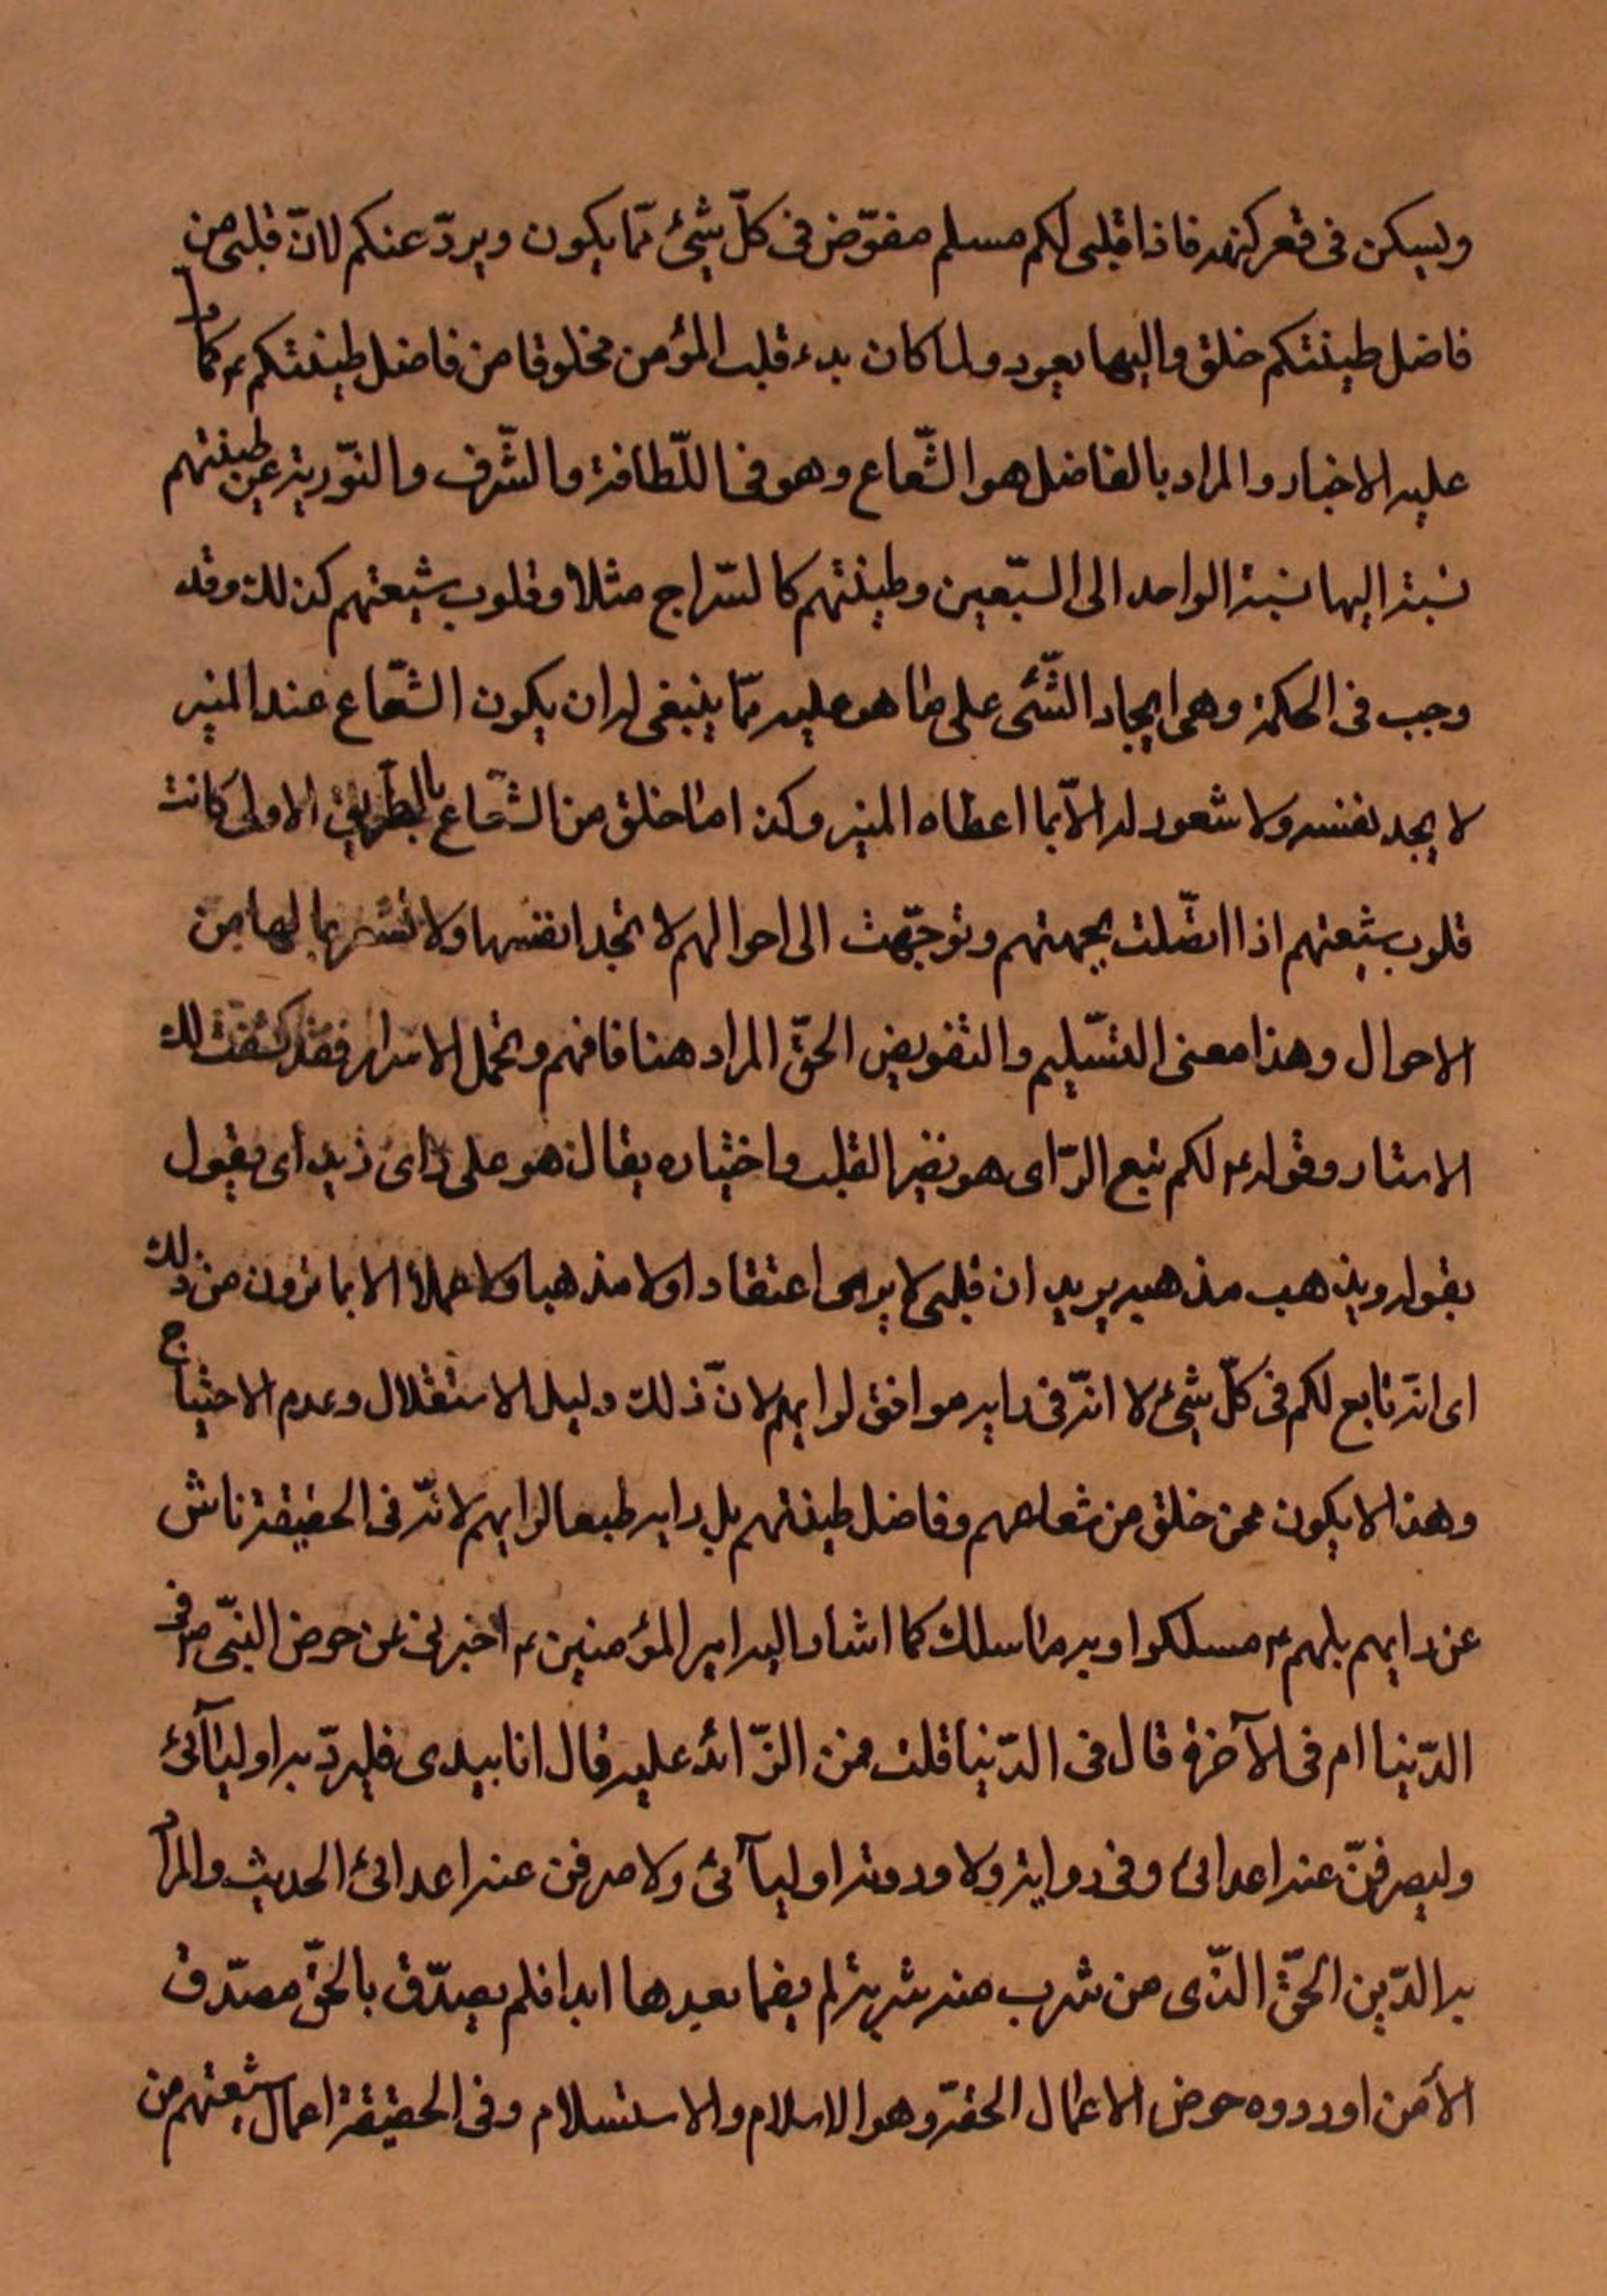 ويسكن في قعر كنهه فاذا قلبى لكم مسلم مفوّض فى كلّ شئ ممّا يكون ويردّ عنكم لانّ قلبى من
فاضل طينتكم خلق واليها يعود ولما كان بدء قلب المؤمن مخلوقا من فاضل طينتكم ع كما دل
عليه الاخبار والمراد بالفاضل هو الشّعاع وهو فى اللّطافة والشّرف والنّورية عن طينتهم
نسبته اليها نسبة الواحد الى السّبعين وطينتهم كالسّراج مثلا وقلوب شيعتهم كذلك وقد
وجب فى الحكمة وهى ايجاد الشّئى على ما هو عليه ممّا ينبغى له ان يكون الشّعاع عند المنير
لا يجد نفسه ولا شعور له الاّ بما اعطاه المنير وكذا ما خلق من الشّعاع بالطريق الاولى كانت
قلوب شيعتهم اذا اتصّلت بجهتهم وتوجّهت الى احوالهم لا تجد انفسها ولا تشعر بما لها من
الاحوال وهذا معنى التسّليم والتفويض الحقّ المراد هنا فافهم وتحمل الاسرار فقد كشفت لك
الاستار وقوله ع لكم تبع الرّاى هو نضر القلب واختياره يقال هو على راى زيد اى يقول
بقوله ويذهب مذهبه يريد ان قلبى لا يرى اعتقادا ولا مذهبا ولا عملا الا بما ترون من ذلك
اى انّه تابع لكم فى كلّ شئ لا انّه فى رايه موافق لرايهم لانّ ذلك دليل الاستقلال وعدم الاحتياج
وهذا لا يكون ممن خلق من شعاعهم وفاضل طينتهم بل رايه طبعا لرايهم لانّه فى الحقيقة ناش
عن رايهم بل بهم ع سلكوا وبه ما سلك كما اشار اليه امير المؤمنين ع اخبرنى عن حوض النبّى ص فى
الدّنيا ام فى الآخرة قال فى الدّنيا قلت فمن الذّائد عليه قال انا بيدى فليردّ به اوليآئى
وليصرفنّ عنه اعدائى وفى رواية ولاوردنه اوليآئى ولاصرفن عنه اعدائى الحديث والمراد
به الدّين الحقّ الذّى من شرب منه شربة لم يضما بعدها ابدا فلم يصدّق بالحقّ مصدّق
الا من اوردوه حوض الاعمال الحقّة وهو الاسلام والاستسلام وفى الحقيقة اعمال شيعتهم من